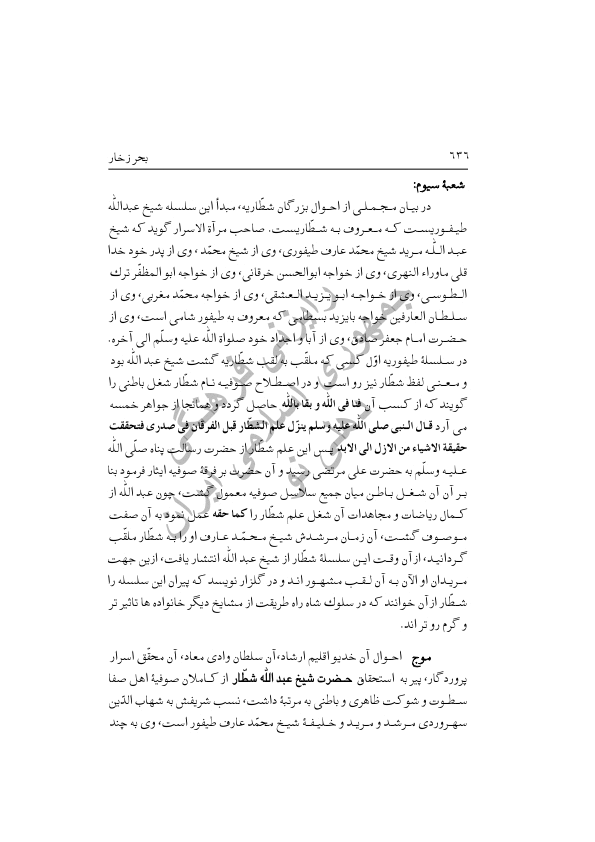 ۶۳۶
بحر زخار
شعبۀ سیوم:
در بیـان مجـمـلـی از احـوال بزرگان شطّاریه، مبدأ این سلسله شیخ عبدالله
طیـفـوریسـت کـه مـعـروف بـه شـطّاریست. صاحب مرآة الاسرار گوید که شیخ
عبـد الـلّـه مـرید شیخ محمّد عارف طیفوری، وی از شیخ محمّد ، وی از پدر خود خدا
قلی ماوراء النهری، وی از خواجه ابوالحسن خرقانی، وی از خواجه ابو المظفّر ترک
الـطـوسـی، وی از خـواجـه ابـو یـزیـد الـعشقی، وی از خواجه محمّد مغربی، وی از
سـلـطـان العارفین خواجه بایزید بسطامی که معروف به طیفور شامی است، وی از
حـضـرت امـام جعفر صادق، وی از آبا و اجداد خود صلواة اللّٰه علیه وسلّم الی آخره.
در سـلسلۀ طیفوریه اوّل کسی که ملقّب به لقب شطّاریه گشت شیخ عبد اللّٰه بود
و مـعـنـی لفظ شطّار نیز رو است و در اصـطـلاح صـوفیـه نـام شطّار شغل باطنی را
گویند که از کسب آن فنا فی اللّٰه و بقا باللّٰه حاصل گردد و همانجا از جواهر خمسه
می آرد قـال الـنبـی صلی اللّٰه علیه وسلم ینزّل علم الشطّار قبل الفرقان فی صدری فتحققت
حقیقة الاشیاء من الازل الی الابد پس این علم شطّار از حضرت رسالت پناه صلّی اللّٰه
عـلیـه وسلّم به حضرت علی مرتضی رسید و آن حضرت بر فرقۀ صوفیه ایثار فرمود بنا
بـر آن آن شـغـل بـاطـن میان جمیع سلاسل صوفیه معمول گشت، چون عبد اللّٰه از
کـمال ریاضات و مجاهدات آن شغل علم شطّار را کما حقه عمل نمود به آن صفت
مـوصـوف گشـت، آن زمـان مـرشـدش شیـخ محـمّـد عـارف او را بـه شطّار ملقّب
گـردانیـد، از آن وقـت ایـن سلسلۀ شطّار از شیخ عبد اللّٰه انتشار یافت، ازین جهت
مـریـدان او الآن بـه آن لـقـب مشـهـور انـد و در گلزار نویسد که پیران این سلسله را
شـطّار از آن خوانند که در سلوک شاه راه طریقت از مشایخ دیگر خانواده ها تاثیر تر
و گرم رو تر اند.
موج احـوال آن خدیو اقلیم ارشاد، آن سلطان وادی معاد، آن محقّق اسرار
پروردگار، پیر به استحقاق حـضـرت شیخ عبد اللّٰه شطّار از کـاملان صوفیۀ اهل صفا
سـطـوت و شوکت ظاهری و باطنی به مرتبۀ داشت، نسب شریفش به شهاب الدّین
سهـروردی مـرشـد و مـریـد و خـلیـفـۀ شیـخ محمّد عارف طیفور است، وی به چند